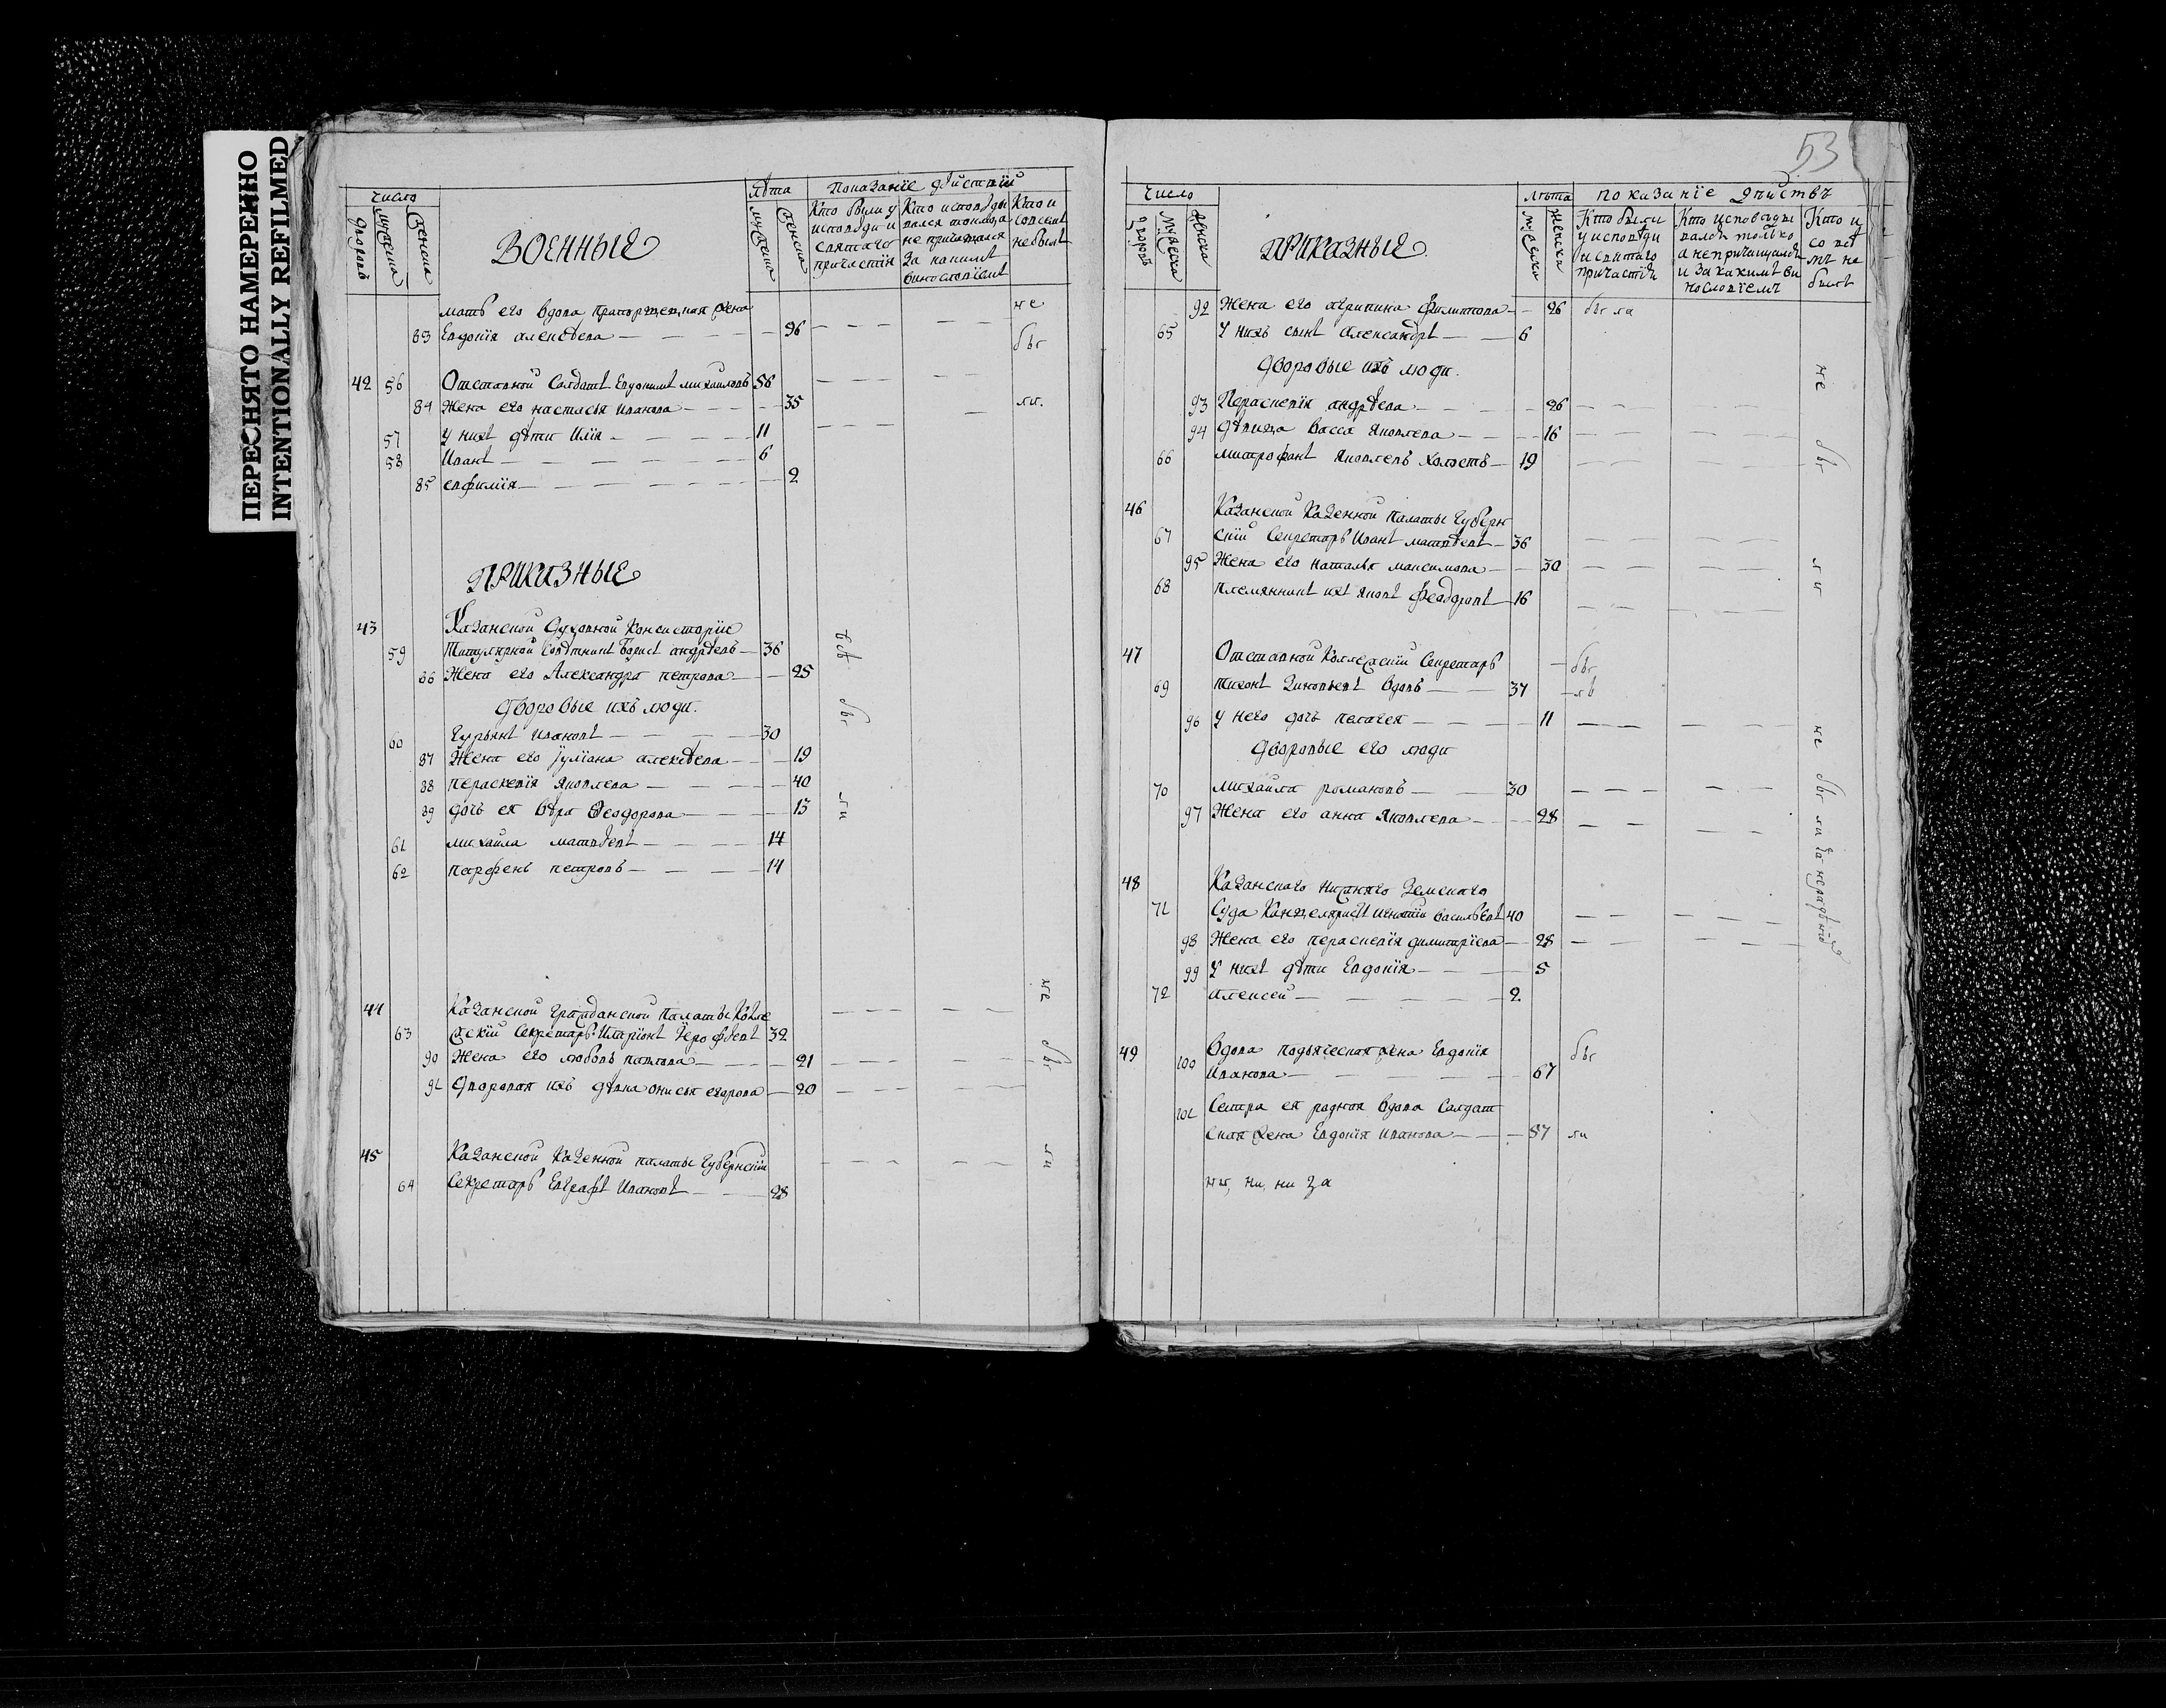 ПЕРЕСНЯТО НАМЕРЕННО
INTENTIONALLY REFILMED
Число
Дворовъ
мужеска
женска
ВОЕННЫЕ
лѣта
мужеска
женска
Показанїе дѣйствїи
Кто были у исповѣди и святаго причастїя
Кто исповѣдывался токмо а не причащался за какимъ винословїемъ
Кто и совсемъ не былъ
мать его вдова прапорщецкая жена
83 Евдокїя алексѣева — 96 не бы
42 56 Отставной Салдатъ Евдокимъ михаиловъ 56
84 Жена его настасья иванова — 35 ли.
57 У нихъ дѣти Илїя — 11
58 Иванъ — 6
85 евфимїя — 2
ПРИКАЗНЫЕ
43 Казанской Духовной Консисторїи
59 Титулярной Совѣтникъ Борисъ андрѣевъ — 36
86 Жена его Александра петрова — 25
Дворовые ихъ люди.
60 Гурьянъ Ивановъ — 30
87 Жена его Јулїана алексѣева — 19
88 параскевїя Яковлева — 40
89 дочь ея Вѣра Ѳеодорова — 13
61 михаила матвѣевъ — 14
62 парфенъ петровъ — 14
всѣ бы ли
44 Казанской гражданской Палаты Колле
63 жскїй Секретарь Иларїонъ Іерофѣевъ 32
90 Жена его любовь павлова — 21
91 Дворовая ихъ дѣвка онисья егорова — 20
45 Казанской Казенной палаты Губернскїй
64 Секретарь Евграфъ Ивановъ — 28
не бы ли
53
Число
Дворовъ
Мужеска
Женска
ПРИКАЗНЫЕ.
лѣта
мужеска
женска
показанїе дѣйствъ
Кто были у исповѣди и святаго причастїя
Кто исповѣдывался только а не причащался и за какимъ винословїемъ
Кто и со всѣмъ не былъ
92 Жена его агрипина Филиппова — 26 бы ли
65 У нихъ сынъ Александръ — 6
Дворовые ихъ люди.
93 Параскевїя андрѣева — 26
94 дѣвица Васса Яковлева — 16
66 митрофанъ Яковлевъ холостъ — 19
46 Казанской Казенной Палаты Губерн
67 скїй Секретарь Иванъ матвѣевъ — 36
95 Жена его наталья максимова — 30
68 племянникъ ихъ Яковъ Феодоровъ — 16
не бы ли
47 Отставной Коллежскїй Секретарь
69 тихонъ Зиновьевъ вдовъ — 37
бы лъ
96 У него дочь пелагея — 11
Дворовые его люди
70 михаила романовъ — 30
97 Жена его анна Яковлева — 28
48 Казанскаго нижняго Земскаго
71 Суда Канцеляристъ игнатїй васильевъ 40
98 Жена его параскевїя димитрїева — 28
99 У нихъ дѣти Евдокїя — 5
72 алексей — 2
не бы ли за нерадѣнїе
49 Вдова подьяческая жена Евдокїя
100 Иванова — 67 бы
101 Сестра ея родная вдова Салдат
ская жена Евдокїя иванова — 57 ли
ни, ни, ни за